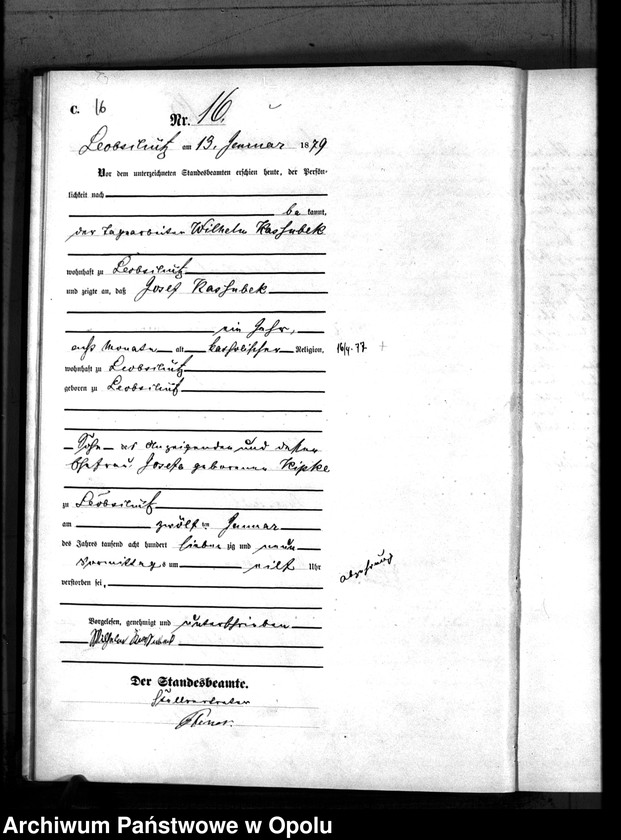 C. 16
Nr. 16.
Leobschütz am 13. Januar 1879
Vor dem unterzeichneten Standesbeamten erschien heute, der Persön-
lichkeit nach
be kannt,
der Tagearbeiter Wilhelm Kaschubek
wohnhaft zu Leobschütz
und zeigte an, daß Josef Kaschubek
ein Jahr,
acht Monate alt katholischer Religion, 16/4. 77
wohnhaft zu Leobschütz
geboren zu Leobschütz
Sohn des Anzeigenden und dessen
Ehefrau Josefa geborenen Kipke
zu Leobschütz
am zwölf ten Januar
des Jahres tausend acht hundert sieben zig und neun
Vormittags um elf Uhr
verstorben sei,
Abzehrung
Vorgelesen, genehmigt und unterschrieben
Wilhelm Kaschubek
Der Standesbeamte.
Stellvertreter
Archiwum Państwowe w Opolu